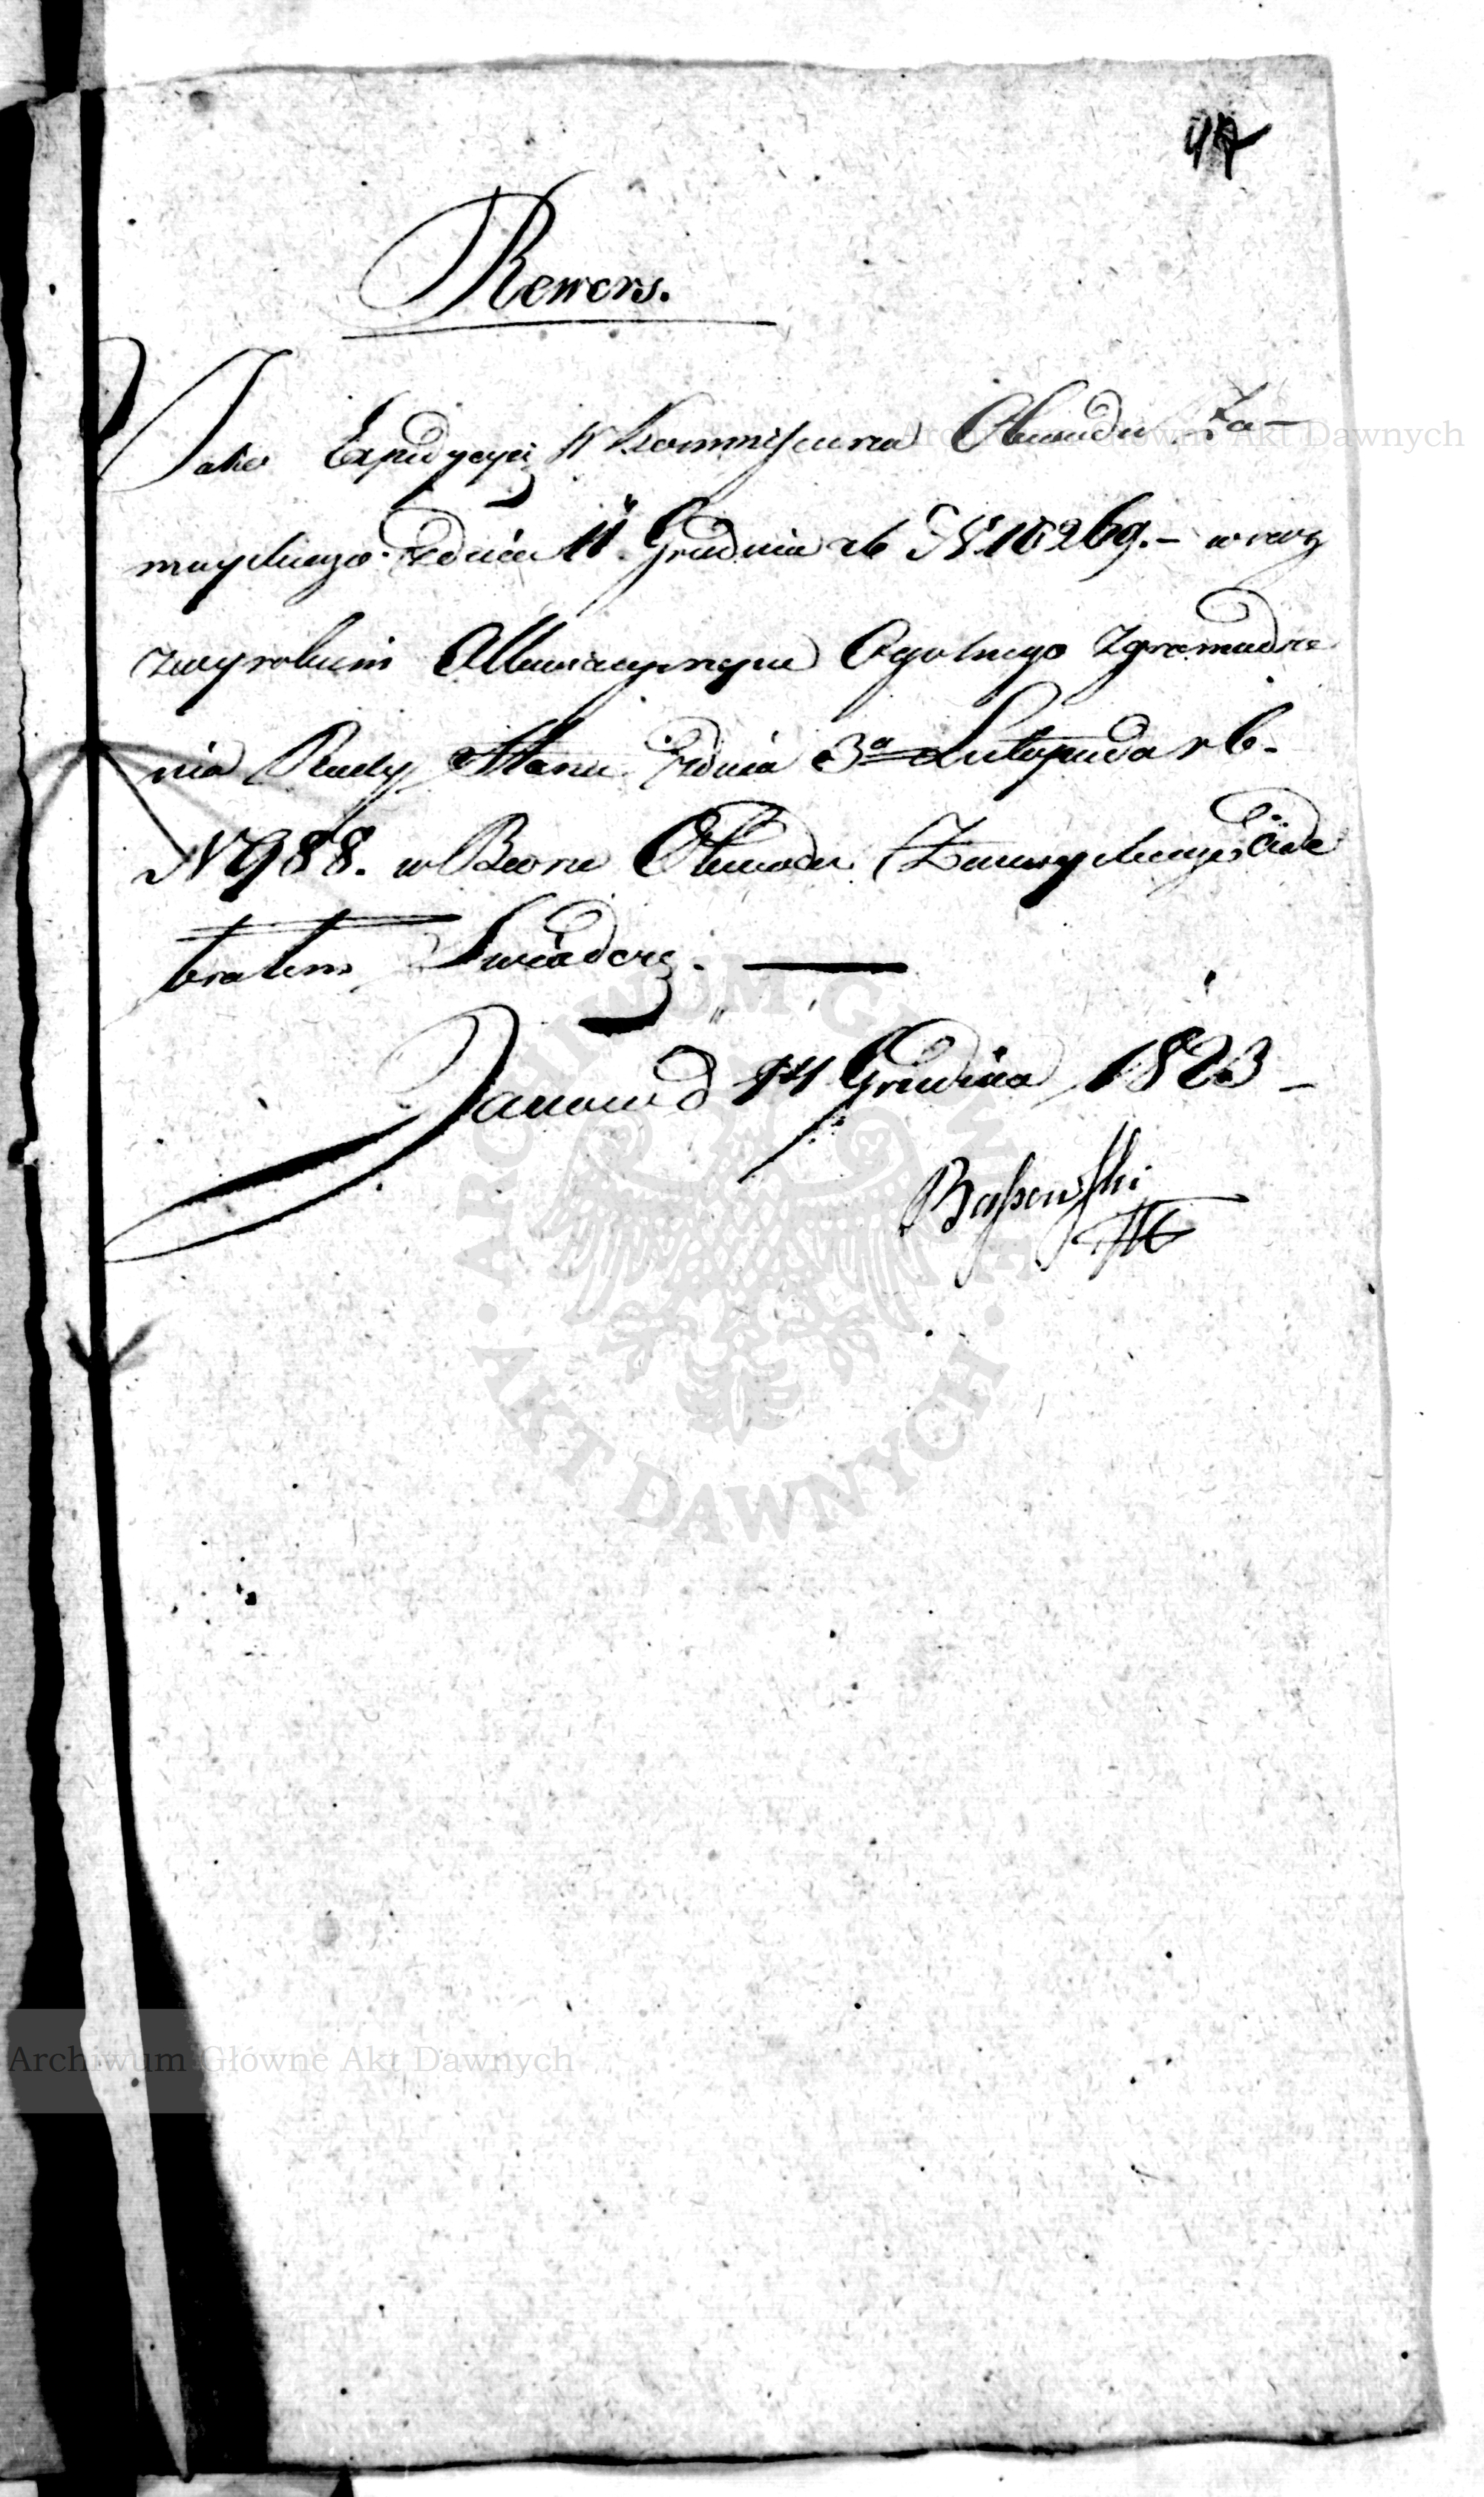 Rewers.
Jako Expedycyę W Kommissarza Obwodu Za-
moyskiego z dnia 11 Grudnia rb N 16269. – wraz
z wyrokiem Ogolnego Zgromadze
nia Rady Stanu z dnia 3ª Listopada rb.
N 988. w Biorze Obwodu Zamoyskiego ode
brałem Swiadczę. —
Janow d 14 Grudnia 1823 –
Archiwum Główne Akt Dawnych
ARCHIWUM GŁÓWNE AKT DAWNYCH
Archiwum Główne Akt Dawnych